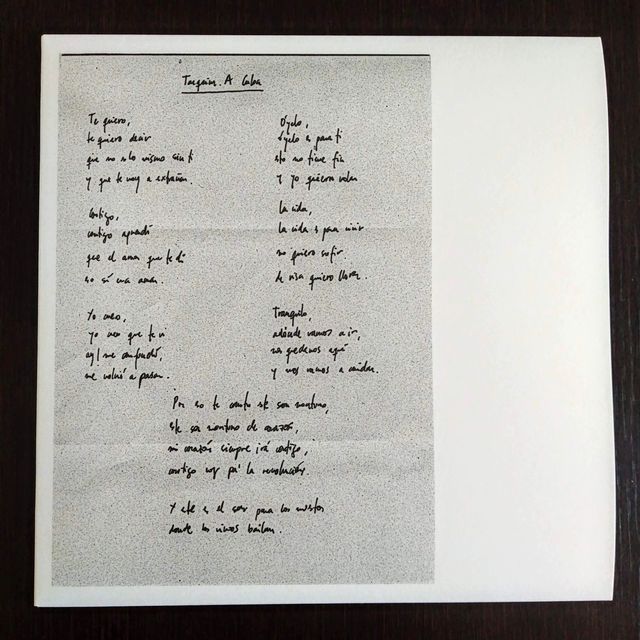 Tarquim. A Cuba
Te quiero,
te quiero decir
que no es lo mismo sin ti
y que te voy a extrañar.
Contigo,
contigo aprendí
que el amor que te di
no sí era amar.
Yo creo,
yo creo que te vi
ay! me confundí,
me volvió a pasar.
Óyelo,
óyelo es para ti
esto no tiene fin
y yo quiero volar
La vida,
la vida es para vivir
no quiero sufrir
de risa quiero llorar.
Tranquilo,
adónde vamos a ir,
nos quedamos aquí
y nos vamos a cuidar.
Por eso te canto este son montuno,
este son montuno de corazón,
mi corazón siempre irá contigo,
contigo voy pa' la revolución.
Y este es el son para los muertos
donde los vivos bailan.